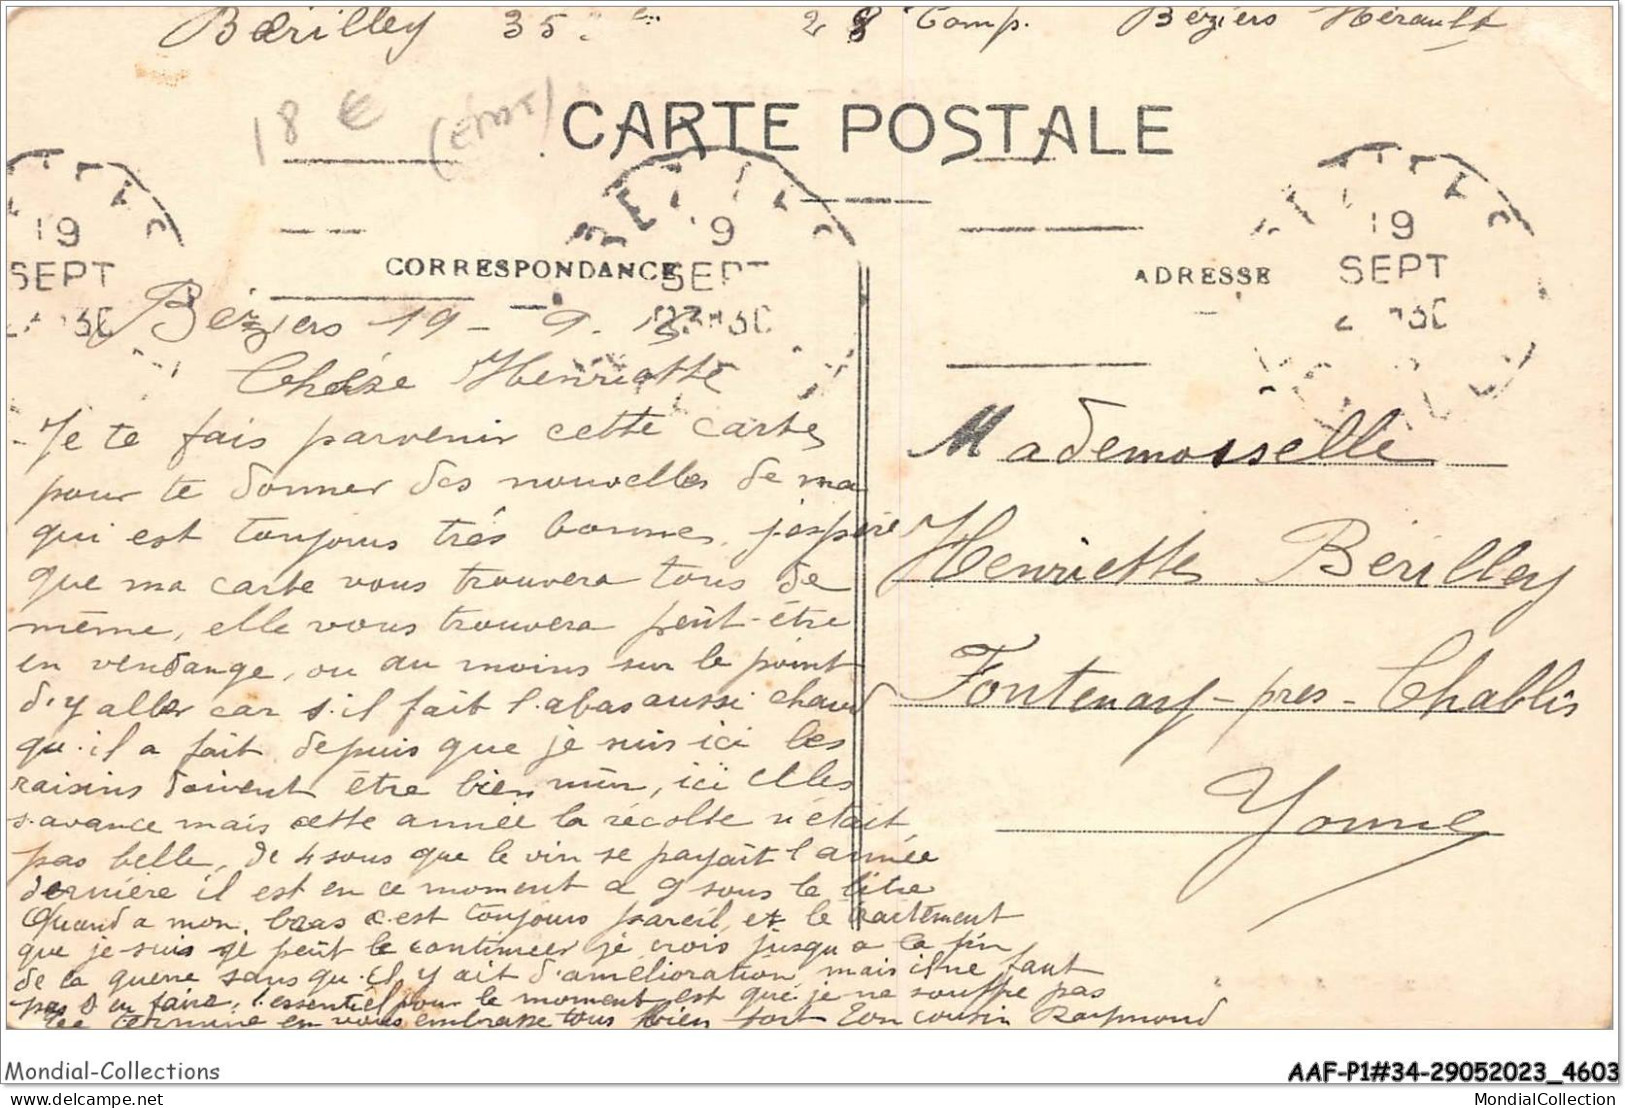 Bérilley 35 28 Comp. Béziers Hérault
18 € (ETAT)
CARTE POSTALE
19
SEPT
19
SEPT
19
SEPT
CORRESPONDANCE
ADRESSE
Béziers 19 - 9.
Chère Henriette
Je te fais parvenir cette carte
pour te donner des nouvelles de ma
qui est toujours très bonnes, j'espère
que ma carte vous trouvera tous de
même, elle vous trouvera peut-être
en vendange, ou au moins sur le point
d'y aller car s'il fait l'abas aussi chaud
qu'il a fait depuis que je suis ici les
raisins doivent être bien mûr, ici elles
s'avance mais cette année la récolte n'était
pas belle, de 4 sous que le vin se payait l'année
dernière il est en ce moment a 9 sous le litre
Quand a mon bras c'est toujours pareil, et le traitement
que je suis je peut le continuer je crois jusqu'a la fin
de la guerre sans qu'il y ait d'amélioration, mais il ne faut
pas s'en faire, l'essentiel pour le moment est que je ne souffre pas
Je termine en vous embrasse tous bien fort Ton cousin Raymond
Mademoiselle
Henriette Bérilley
Fontenay-près-Chablis
Yonne
Mondial-Collections
AAF-P1#34-29052023_4603
delcampe.net
MondialCollection